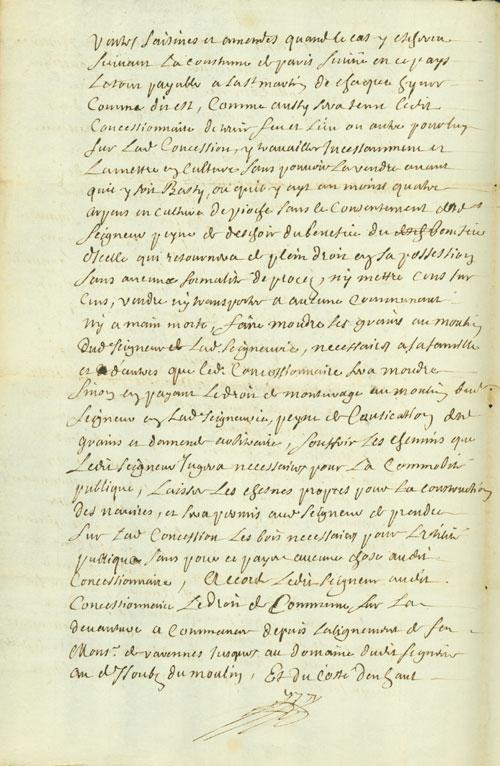 ventes saisines et amendes quand le cas y escherra
suivant la coustume de paris suivie en ce pays
Le tout payable a la st martin de chaque hyver
Comme dit est, Comme aussy sera tenu ledit
Concessionnaire de tenir feu et Lieu ou autre pour luy
sur Lad Concession, y travailler Incessamment et
La mettre en Culture sans pouvoir La vendre avant
qu'il y soit Basty, ou qu'il y ayt au moins quatre
arpens en culture de pioche sans le Consentement dud
Seigneur peyne de deschoir du benefice du
d'Icelle qui retournera de plein droit en sa possession
sans aucune formalité de procez, n'y mettre Cens sur
Cens, vendre n'y transporter a aucune Communauté
n'y a main morte, faire moudre les grains au moulin
dud Seigneur de Lad Seigneurie, necessaires a sa famille
et d'autres que led Concessionnaire fera moudre
sinon en payant Le droit de mouturage au moulin dud
Seigneur en Lad Seigneurie, peyne de Confiscation des
grains et d'amende arbitraire, souffrir Les chemins que
Ledit Seigneur Jugera necessaires pour La Commodité
publique, Laisser Les chesnes propres pour la construction
des navires, et sera permis aud Seigneur de prendre
sur Lad Concession Les bois necessaires pour L'utilité
publique sans pour ce payer aucune chose audit
Concessionnaire, Accorde Ledit Seigneur audit
Concessionnaire Le droit de Commune sur La
devanture a Commencer depuis l'alignement de feu
Monsr. de varennes Jusques au domaine dudit Seigneur
au d' du moulin, Et du Costé d'en haut